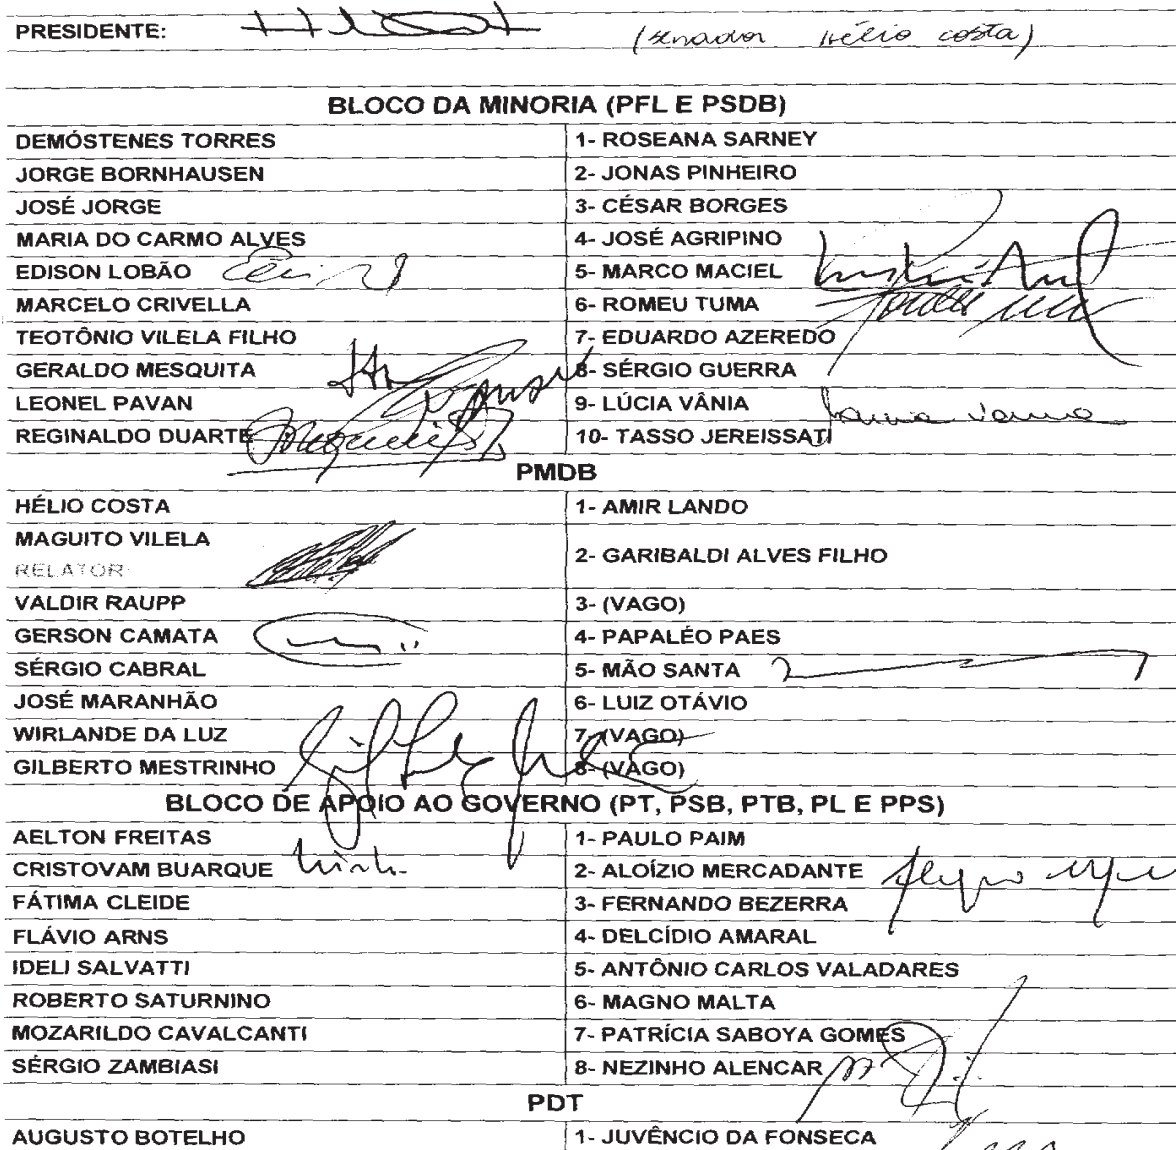 PRESIDENTE: (senador Hélio Costa)
BLOCO DA MINORIA (PFL E PSDB)
DEMÓSTENES TORRES 1- ROSEANA SARNEY
JORGE BORNHAUSEN 2- JONAS PINHEIRO
JOSÉ JORGE 3- CÉSAR BORGES
MARIA DO CARMO ALVES 4- JOSÉ AGRIPINO
EDISON LOBÃO 5- MARCO MACIEL
MARCELO CRIVELLA 6- ROMEU TUMA
TEOTÔNIO VILELA FILHO 7- EDUARDO AZEREDO
GERALDO MESQUITA 8- SÉRGIO GUERRA
LEONEL PAVAN 9- LÚCIA VÂNIA
REGINALDO DUARTE 10- TASSO JEREISSATI
PMDB
HÉLIO COSTA 1- AMIR LANDO
MAGUITO VILELA
RELATOR 2- GARIBALDI ALVES FILHO
VALDIR RAUPP 3- (VAGO)
GERSON CAMATA 4- PAPALÉO PAES
SÉRGIO CABRAL 5- MÃO SANTA
JOSÉ MARANHÃO 6- LUIZ OTÁVIO
WIRLANDE DA LUZ 7- (VAGO)
GILBERTO MESTRINHO 8- (VAGO)
BLOCO DE APOIO AO GOVERNO (PT, PSB, PTB, PL E PPS)
AELTON FREITAS 1- PAULO PAIM
CRISTOVAM BUARQUE 2- ALOÍZIO MERCADANTE
FÁTIMA CLEIDE 3- FERNANDO BEZERRA
FLÁVIO ARNS 4- DELCÍDIO AMARAL
IDELI SALVATTI 5- ANTÔNIO CARLOS VALADARES
ROBERTO SATURNINO 6- MAGNO MALTA
MOZARILDO CAVALCANTI 7- PATRÍCIA SABOYA GOMES
SÉRGIO ZAMBIASI 8- NEZINHO ALENCAR
PDT
AUGUSTO BOTELHO 1- JUVÊNCIO DA FONSECA